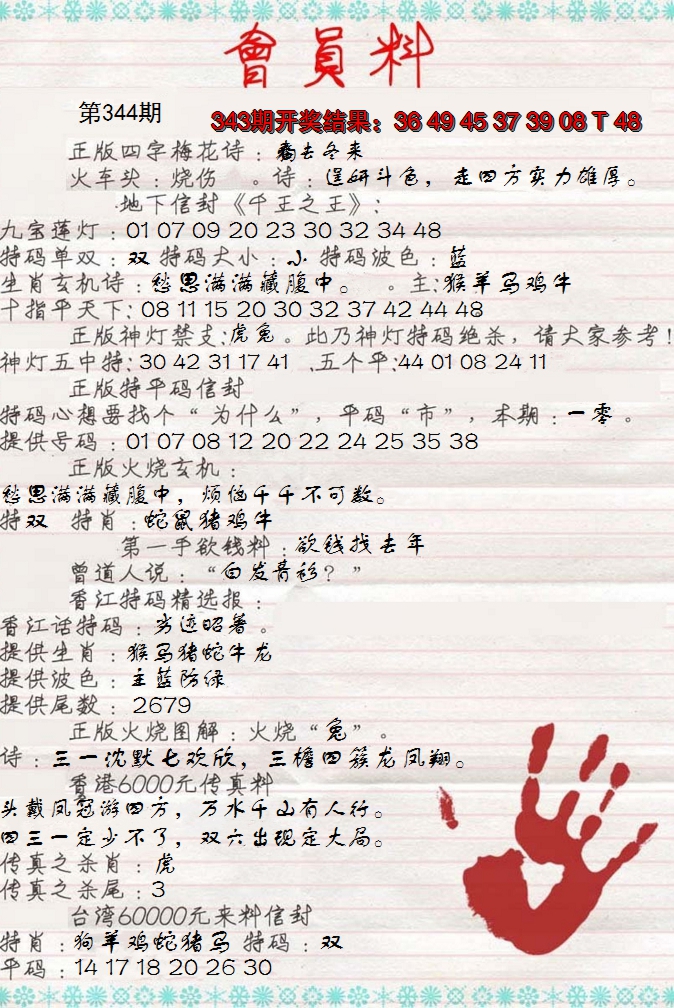 會員料
第344期
343期开奖结果：36 49 45 37 39 08 T 48
正版四字梅花诗：秋去冬来
火车头：烧伤 。诗：逞妍斗色，走四方实力雄厚。
地下信封《千王之王》：
九宝莲灯：01 07 09 20 23 30 32 34 48
特码单双：双 特码大小：小 特码波色：蓝
生肖玄机诗：愁思满满藏腹中。 。主：猴羊马鸡牛
十指平天下：08 11 15 20 30 32 37 42 44 48
正版神灯禁支：虎兔。此乃神灯特码绝杀，请大家参考！
神灯五中特：30 42 31 17 41 、五个平：44 01 08 24 11
正版特平码信封
特码心想要找个“为什么”，平码“市”，本期：一零。
提供号码：01 07 08 12 20 22 24 25 35 38
正版火烧玄机：
愁思满满藏腹中，烦恼千千不可数。
特双 特肖：蛇鼠猪鸡牛
第一手欲钱料：欲钱找去年
曾道人说：“白发青衫？”
香江特码精选报：
香江话特码：劣迹昭著。
提供生肖：猴马猪蛇牛龙
提供波色：主蓝防绿
提供尾数：2679
正版火烧图解：火烧“兔”。
诗：三一沈默七欢欣，三檐四簇龙凤翔。
香港6000元传真料
头戴凤冠游四方，万水千山有人行。
四三一定少不了，双六出现定大局。
传真之杀肖：虎
传真之杀尾：3
台湾60000元来料信封
特肖：狗羊鸡蛇猪马 特码：双
平码：14 17 18 20 26 30